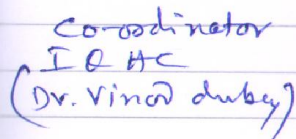 Co-ordinator
IQAC
(Dr. Vinod dubey)